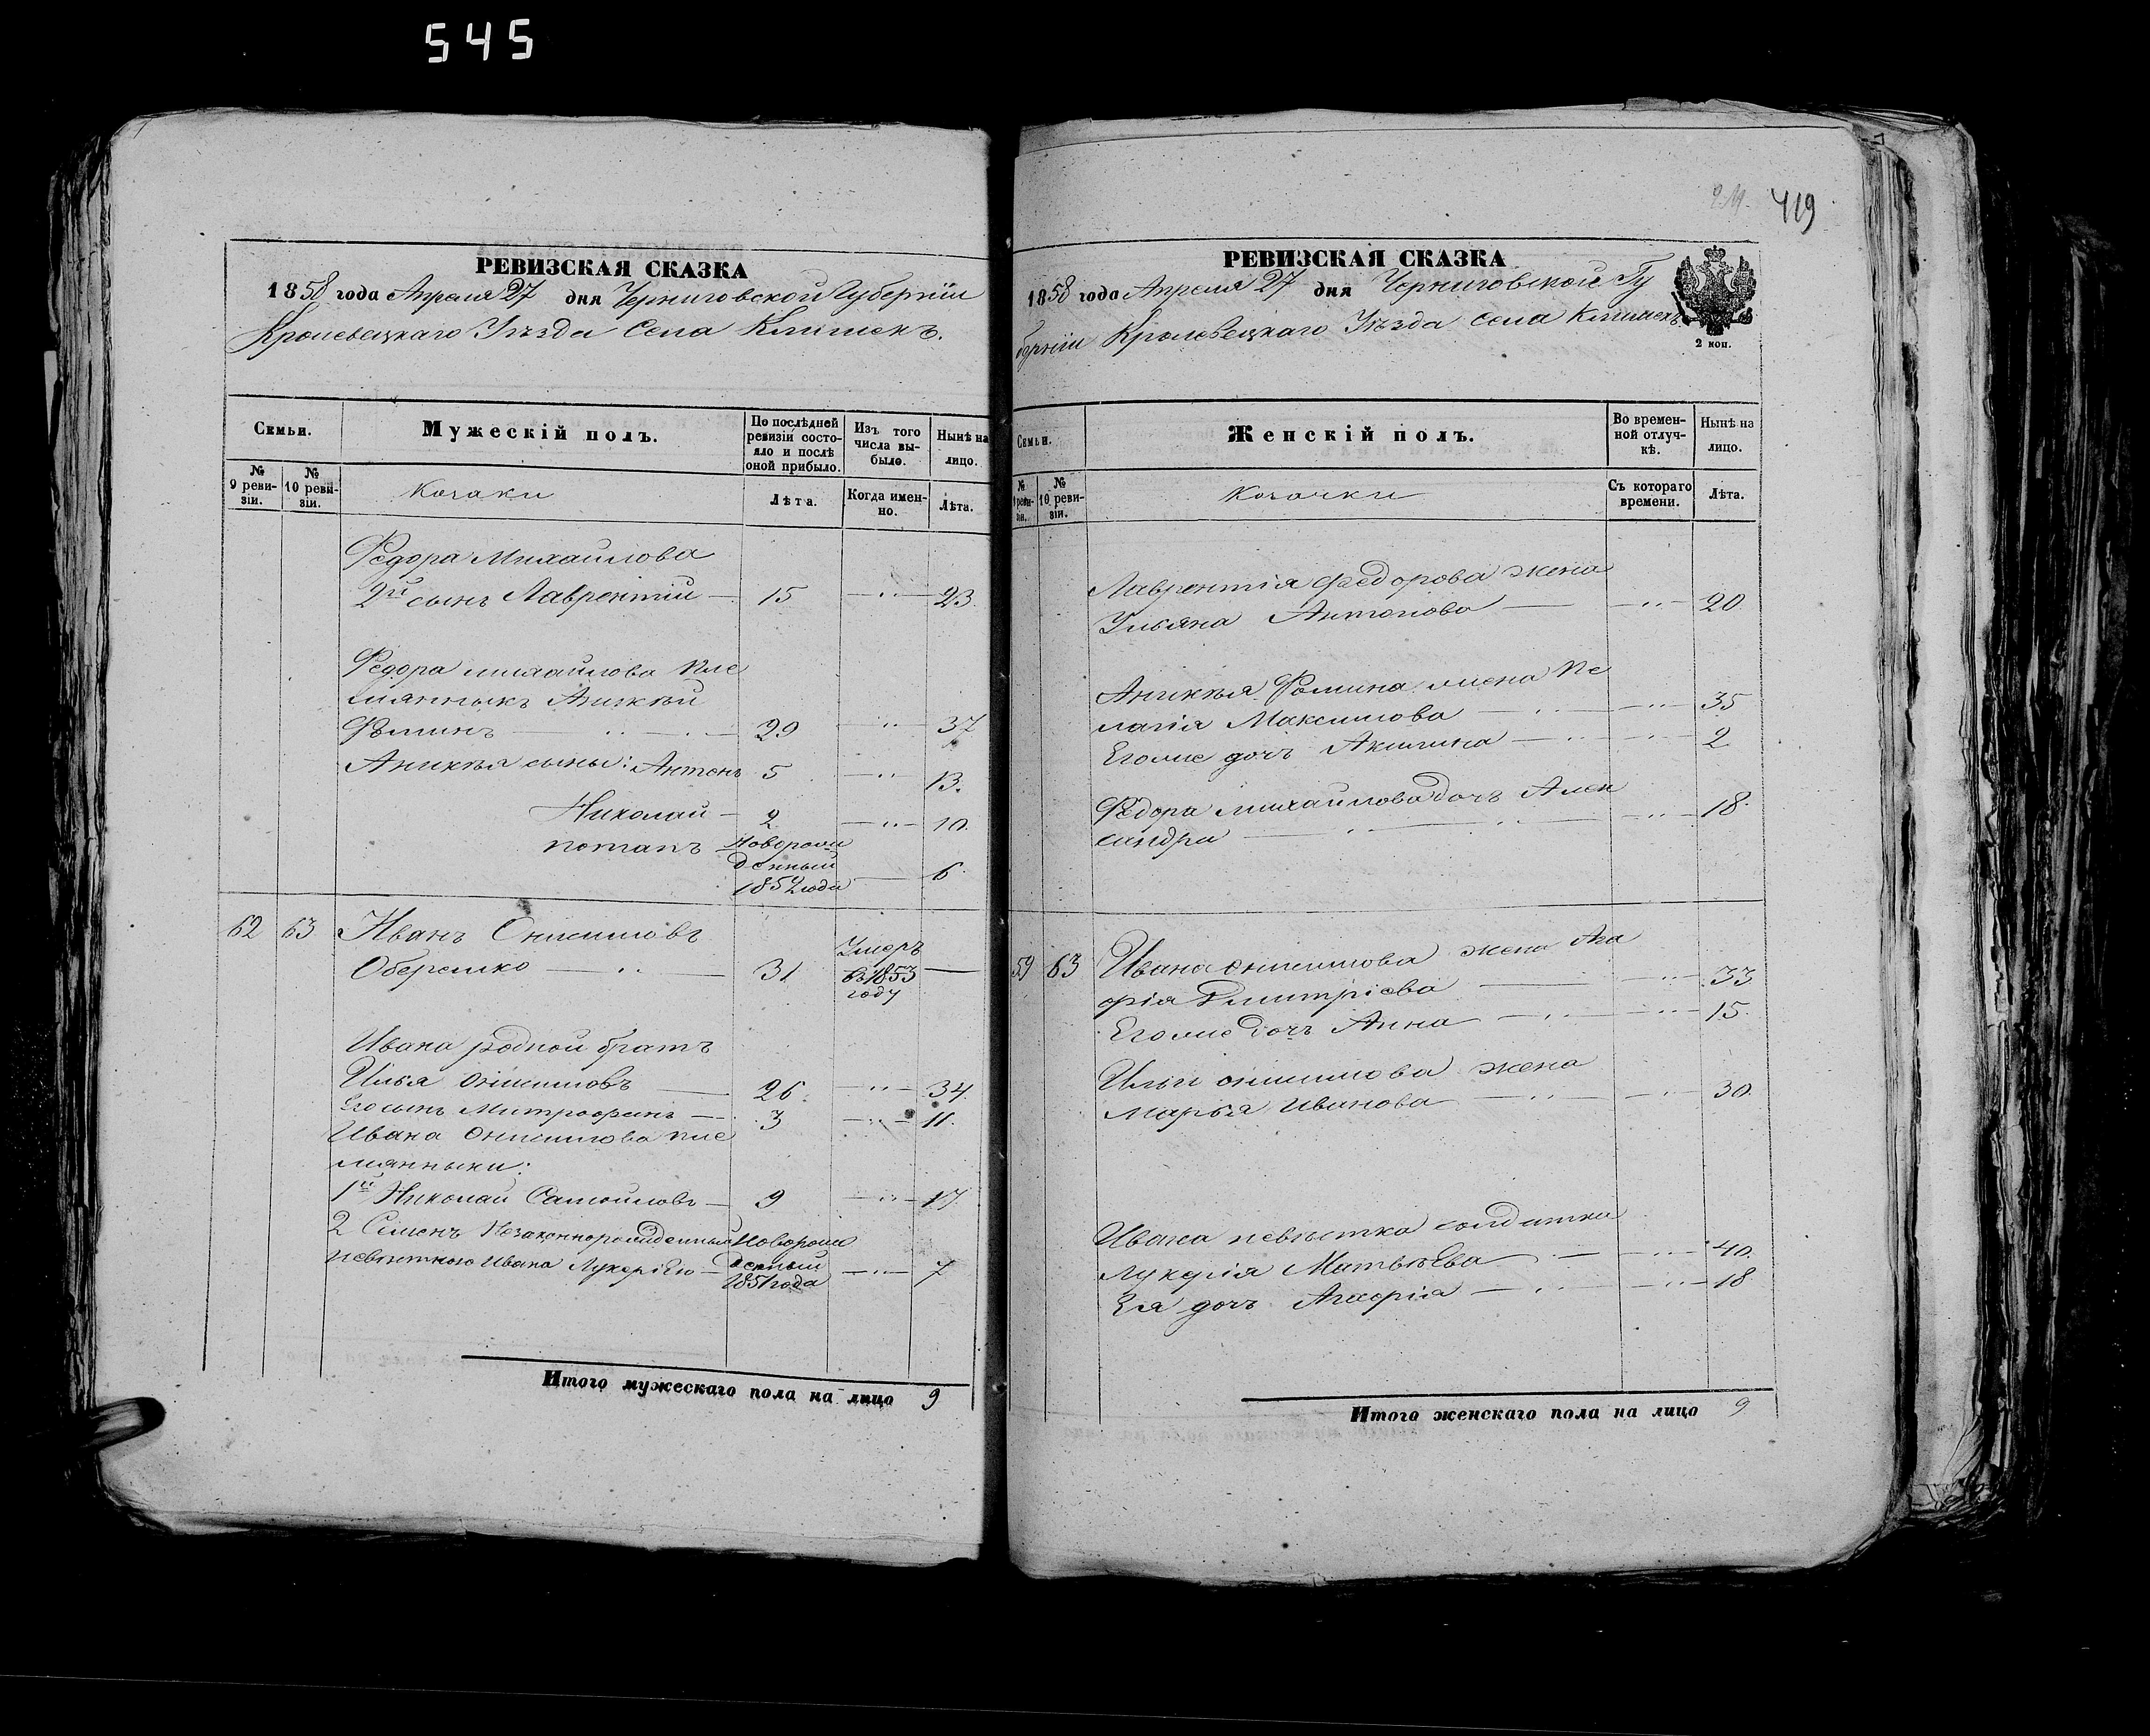 545
РЕВИЗСКАЯ СКАЗКА
1858 года Апреля 27 дня Черниговской Губерніи
Кролевецкаго Уѣзда Села Клишекъ.
Семьи.
Мужескій полъ.
По послѣдней ревизіи состояло и послѣ оной прибыло.
Изъ того числа выбыло.
Нынѣ на лицо.
№ 9 ревизіи.
№ 10 ревизіи.
Козаки
Лѣта.
Когда именно.
Лѣта.
Федора Михайлова
2й сынъ Лаврентій — 15 — " — 23.
Федора Михайлова пле
мянныкъ Аникѣй
Фоминъ — " — 29 — " — 37
Аникѣя сыны: Антонъ 5 — " 13.
Николай — 2 — " — 10.
Потапъ Новорож
денный
1852 года — 6.
62 63 Иванъ Онисимовъ
Оберемко — " — 31 Умеръ въ 1853 году —
Ивана родной братъ
Илья Онисимовъ — 26. — " — 34.
Его сынъ Митрофанъ — 3 — " — 11.
Ивана Онисимова пле
мянныки:
1й Николай Самойловъ — 9 — " — 17
2 Семенъ Незаконнорожденный Новорож
невѣсткою Ивана Лукеріею — денный — " — 7
1851 года
Итого мужескаго пола на лицо 9
419
РЕВИЗСКАЯ СКАЗКА
1858 года Апреля 27 дня Черниговской Гу
берніи Кролевецкаго Уѣзда села Клишекъ
2 коп.
Семьи.
Женскій полъ.
Во временной отлучкѣ.
Нынѣ на лицо.
№ 9 ревизіи.
№ 10 ревизіи.
Козачки
Съ котораго времени.
Лѣта.
Лаврентія Федорова жена
Ульяна Антонова — — " — 20
Аникѣя Фомина жена Пе
лагія Максимова — " — — " — 35
Его же дочь Акилина — " — " — 2
Федора Михайлова дочь Алек
сандра — " — " — — " — 18.
59 63 Ивана Онисимова жена Ага
фія Дмитріева — — " — 33
Его же дочь Анна — " — — " — 15.
Ильи Онисимова жена
Марья Иванова — " — — " — 30.
Ивана невѣстка солдатка
Лукерія Матвѣева — " — — " — 40.
Ея дочь Агафія — " — — " — 18
Итого женскаго пола на лицо 9